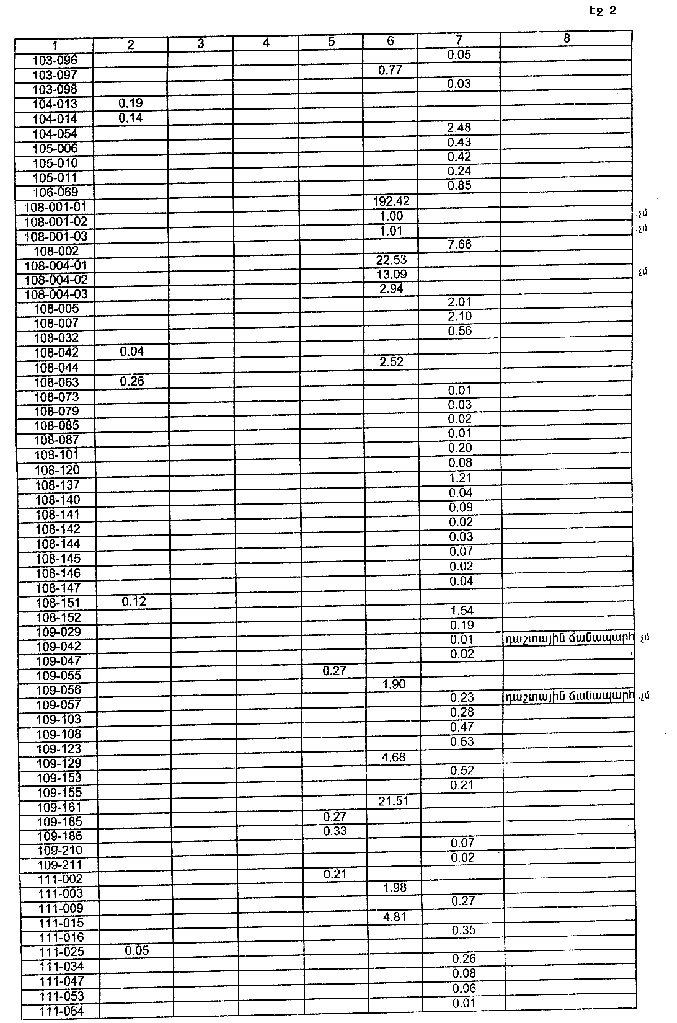 էջ 2
1 2 3 4 5 6 7 8
103-096 0.05
103-097 0.77
103-098 0.03
104-013 0.19
104-014 0.14
104-054 2.48
105-006 0.43
105-010 0.42
105-011 0.24
106-069 0.85
108-001-01 192.42
108-001-02 1.00 չմ
108-001-03 1.01 չմ
108-002 7.66
108-004-01 22.53
108-004-02 13.09 չմ
108-004-03 2.94
108-005 2.01
108-007 2.10
108-032 0.56
108-042 0.04
108-044 2.52
108-063 0.26
108-073 0.01
108-079 0.03
108-085 0.02
108-087 0.01
108-101 0.20
108-120 0.08
108-137 1.21
108-140 0.04
108-141 0.09
108-142 0.02
108-144 0.03
108-145 0.07
108-146 0.02
108-147 0.04
108-151 0.12
108-152 1.54
109-029 0.19
109-042 0.01 դաշտային ճանապարհ չմ
109-047 0.02
109-055 0.27
109-056 1.90
109-057 0.23 դաշտային ճանապարհ չմ
109-103 0.28
109-108 0.47
109-123 0.63
109-129 4.68
109-153 0.52
109-155 0.21
109-161 21.51
109-185 0.27
109-186 0.33
109-210 0.07
109-211 0.02
111-002 0.21
111-003 1.98
111-009 0.27
111-015 4.81
111-016 0.35
111-025 0.05
111-034 0.26
111-047 0.08
111-053 0.06
111-064 0.01